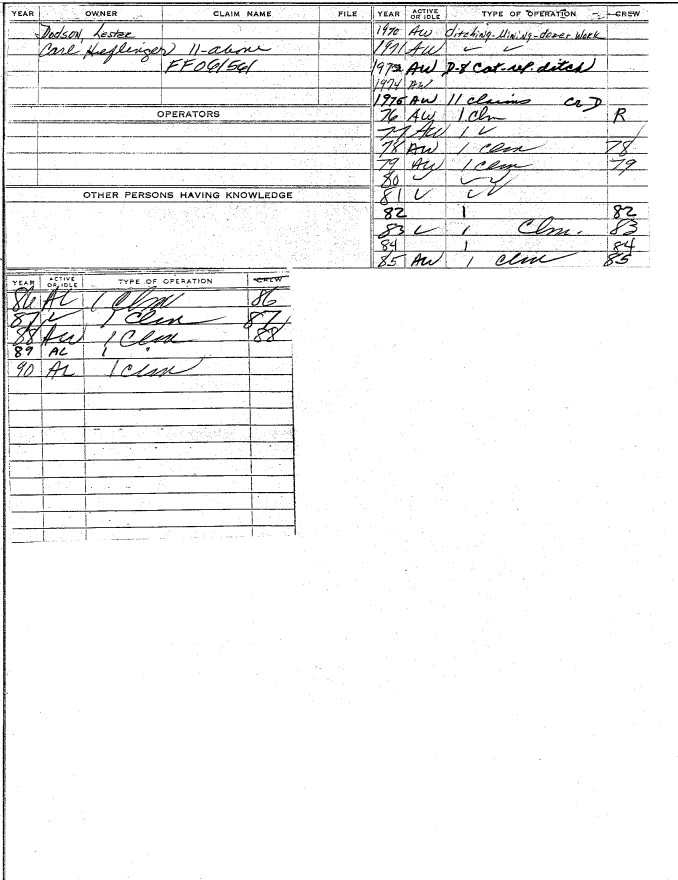 YEAR OWNER CLAIM NAME FILE
Dodson, Lester
Carl Heflinger 11-above
FF061561
OPERATORS
OTHER PERSONS HAVING KNOWLEDGE
YEAR ACTIVE OR IDLE TYPE OF OPERATION CREW
1970 AW ditching-Mining-dozer Work
1971 AW ✓ ✓
1973 AW D-8 Cat-rep. ditch
1974 AW
1975 AW 11 claims
76 AW 1 Clm R
77 AW 1 ✓
78 AW 1 Clm 78
79 AW 1 Clm 79
80 ✓ ✓
81 ✓ ✓
82 1 82
83 ✓ 1 Clm. 83
84 1 84
85 AW 1 clm 85
YEAR ACTIVE OR IDLE TYPE OF OPERATION CREW
86 AL 1 Clm 86
87 ✓ 1 Clm 87
88 AW 1 Clm 88
89 AL 1 "
90 AL 1 clm